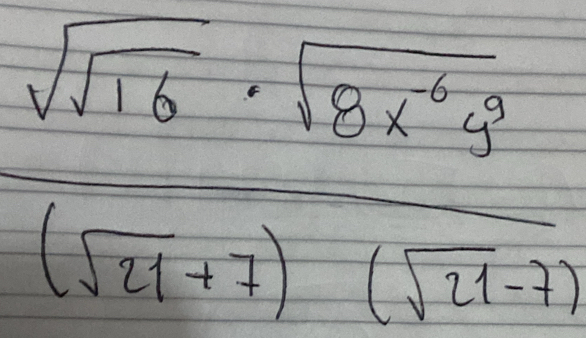 √√16 · √8x⁻⁶y⁹
(√21 + 7) (√21 - 7)